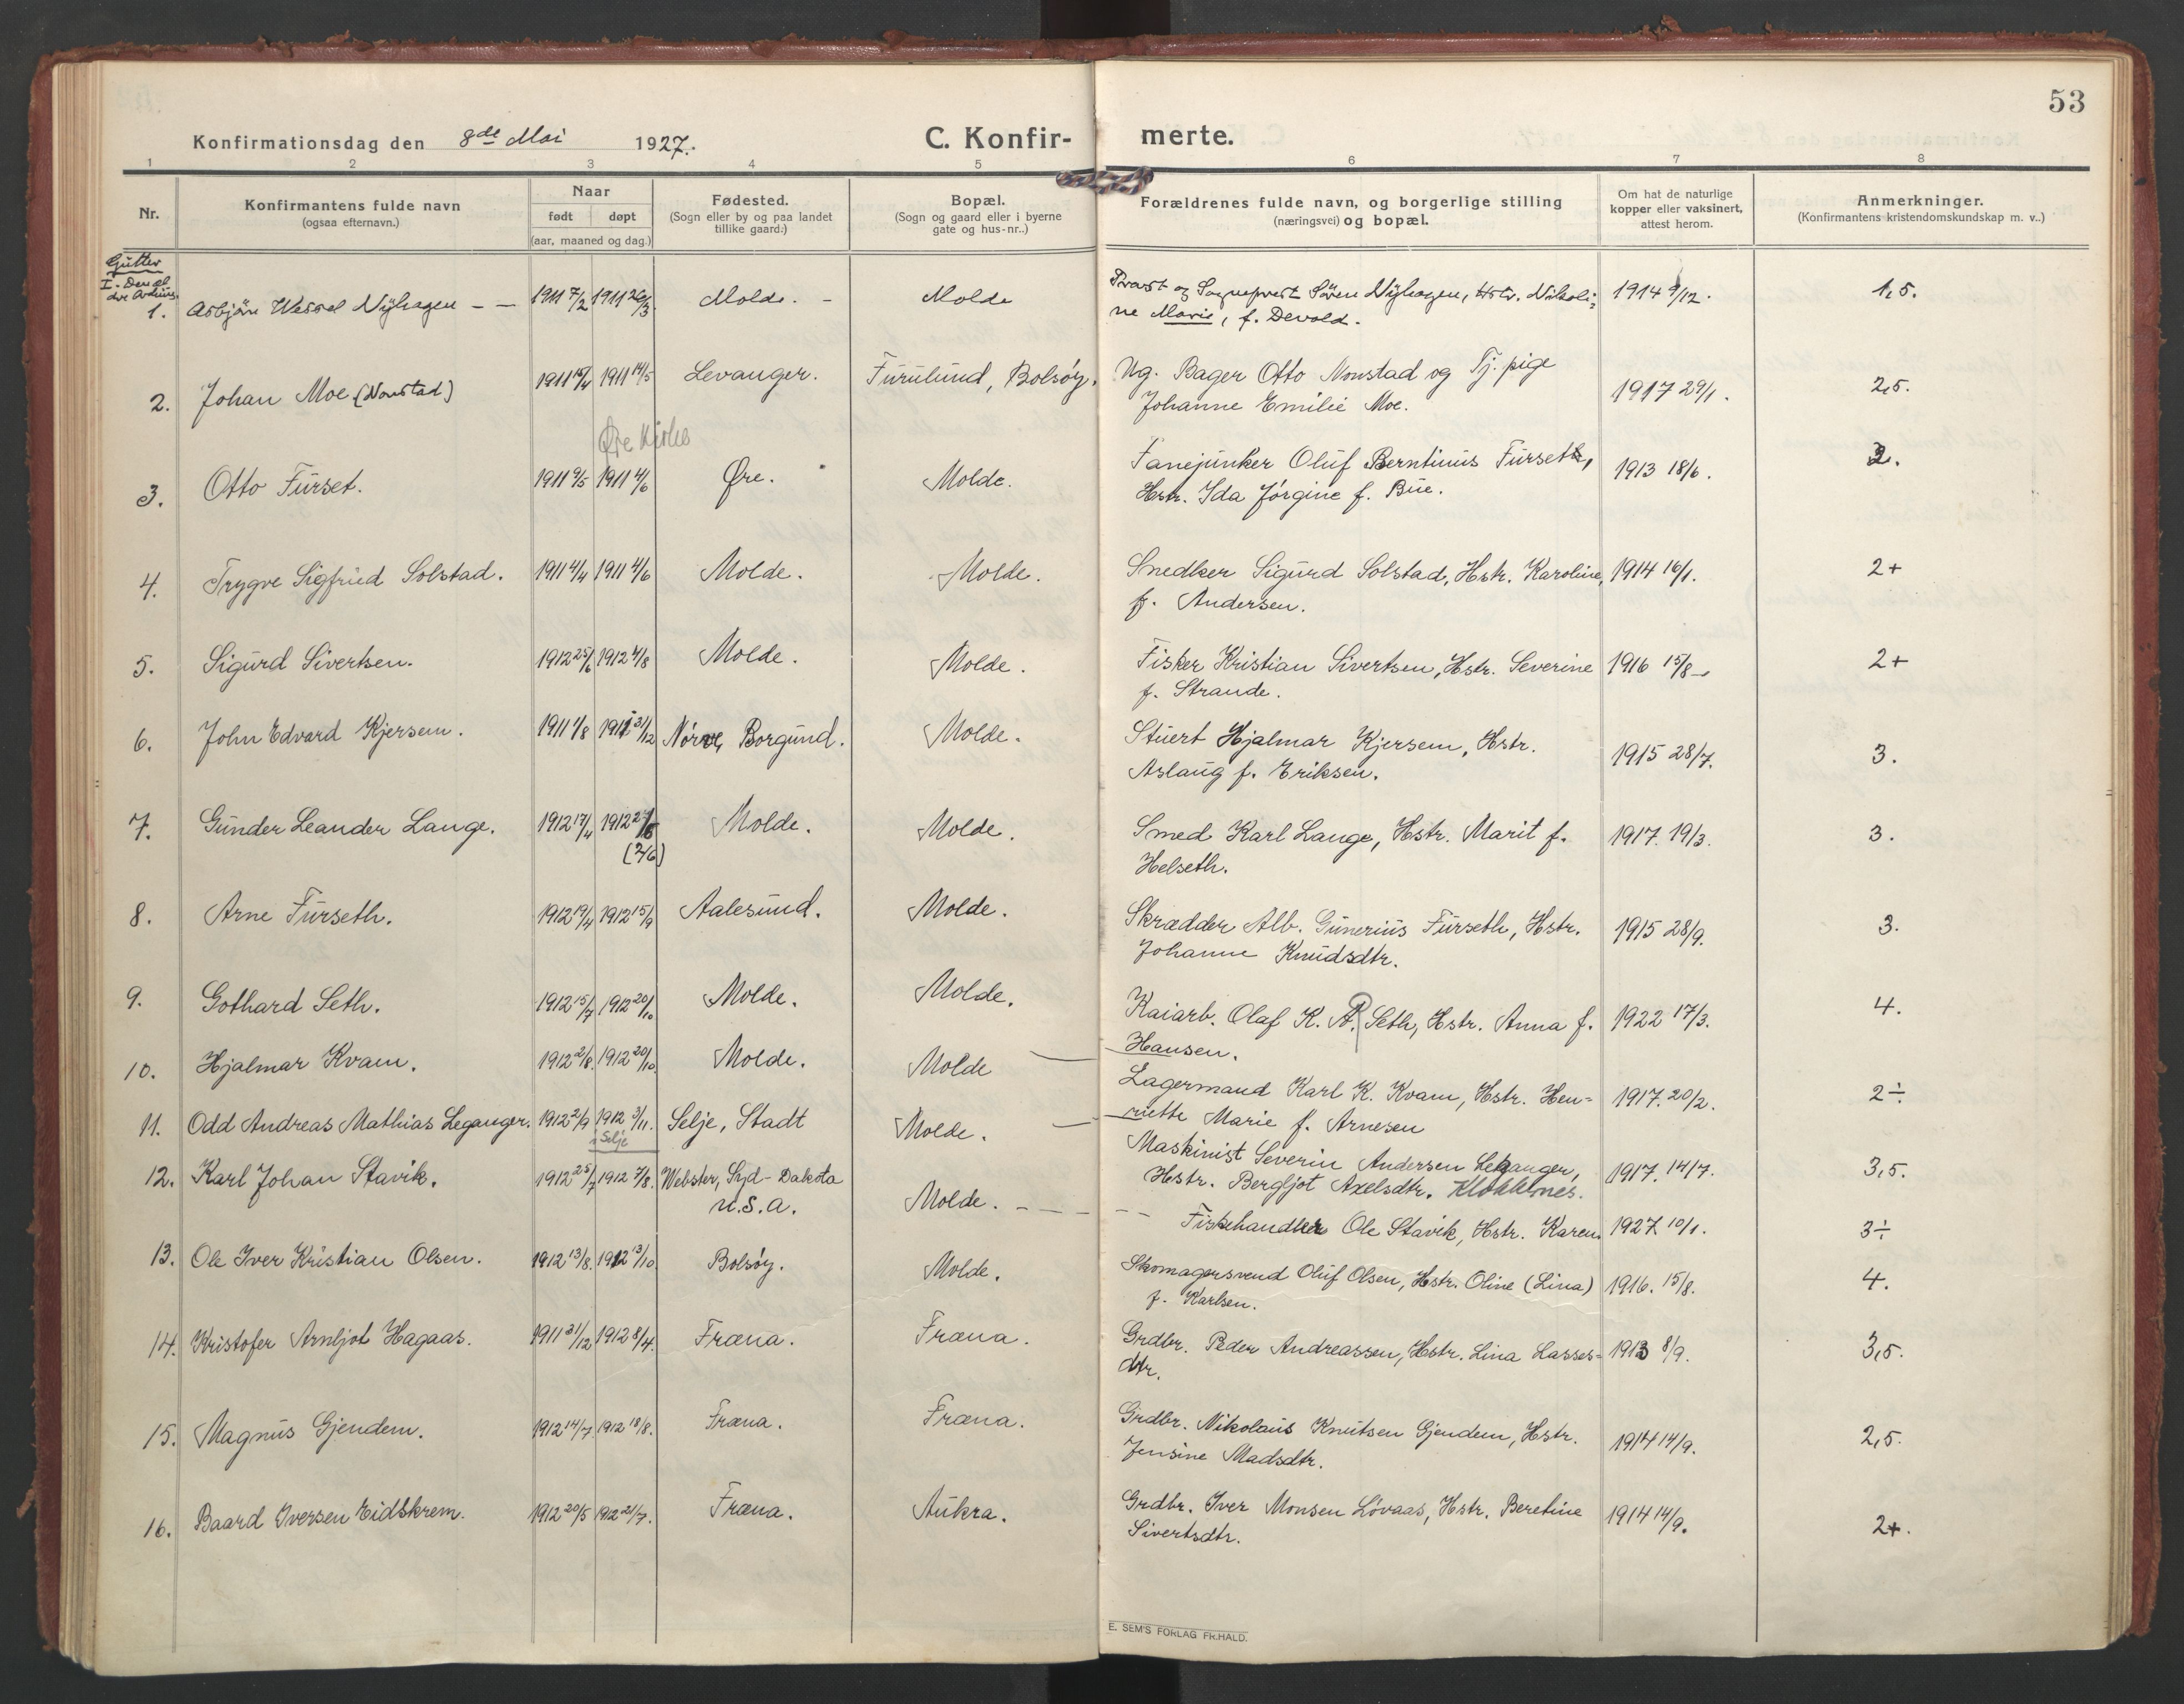 53
Konfirmationsdag den 8de Mai 1927.
C. Konfirmerte.
1 2 3 4 5 6 7 8
Nr.
Konfirmantens fulde navn
(ogsaa efternavn.)
Naar
født døpt
(aar, maaned og dag.)
Fødested.
(Sogn eller by og paa landet
tillike gaard.)
Bopæl.
(Sogn og gaard eller i byerne
gate og hus-nr..)
Forældrenes fulde navn, og borgerlige stilling
(næringsvei) og bopæl.
Om hat de naturlige
kopper eller vaksinert,
attest herom.
Anmerkninger.
(Konfirmantens kristendomskundskap m. v..)
Gutter
1. Asbjörn Wessel Nÿhagen - - 1911 7/2 1911 26/3 Molde. - Molde Provst og Sogneprest Sören Nÿhagen, Hstr. Nikoli-
ne Marie, f. Devold. 1914 9/12. 1,5.
2. Johan Moe (Nonstad) 1911 1911 14/5 Levanger. Furulund, Bolsøy. Ug. Bager Otto Nonstad og Tj. pige
Johanne Emilie Moe. 1917 29/1. 2,5.
Øre Kirke
3. Otto Furset. 1911 9/5 1911 4/6 Øre. Molde. Fanejunker Oluf Berntinus Furseth,
Hstr. Ida Jørgine f. Bue. 1913 18/6.
4. Trygve Sigfried Solstad. 1911 4/4 1911 4/6 Molde. Molde. Snedker Sigurd Solstad, Hstr. Karoline,
f. Andersen. 1914 16/1. 2+
5. Sigurd Sivertsen. 1912 25/6 1912 4/8 Molde. Molde. Fisker Kristian Sivertsen, Hstr. Severine
f. Strande. 1916 15/8 2+
6. John Edvard Kjersem. 1911 1/8 1911 31/12 Nørve, Borgund. Molde. Stuert Hjalmar Kjersem, Hstr.
Aslaug f. Eriksen. 1915 28/7. 3.
7. Gunder Leander Lange. 1912 17/4 1912
(2/6) Molde. Molde. Smed Karl Lange, Hstr. Marit f.
Helseth. 1917. 19/3. 3.
8. Arne Furseth. 1912 19/4 1912 15/9 Aalesund. Molde. Skrædder Alb. Gunerius Furseth, Hstr.
Johanne Knudsdtr. 1915 28/9. 3.
9. Gothard Seth. 1912 15/7 1912 20/10 Molde. Molde. Kaiarb. Olaf K. P. Seth, Hstr. Anna f.
Hansen. 1922 17/3. 4.
10. Hjalmar Kvam. 1912 2/8. 1912 20/10 Molde. Molde Lagermand Karl K. Kvam, Hstr. Hen-
riette Marie f. Arnesen 1917. 20/2. 2÷
11. Odd Andreas Mathias Leganger. 1912 2/9 1912 3/11. i Selje Selje, Stadt Molde. Maskinist Severin Andersen Leganger,
Hstr. Bergljot Axelsdtr. Klokkernes. 1917. 14/7. 3,5.
12. Karl Johan Stavik. 1912 25/7 1912 7/8. Webster, Syd-Dakota
U.S.A. Molde. - - - Fiskehandler Ole Stavik, Hstr. Karen 1927 10/1. 3÷
13. Ole Iver Kristian Olsen. 1912 13/8. 1912 13/10 Bolsøy. Molde. Skomagersvend Oluf Olsen, Hstr. Oline (Lina)
f. Karlsen. 1916. 15/8. 4.
14. Kristofer Arnljot Hagaas. 1911 31/12 1912 8/4. Fræna. Fræna. Grdbr. Peder Andreassen, Hstr. Lina Lasses-
dtr. 1913 8/9. 3,5.
15. Magnus Gjendem. 1912 14/7. 1912 18/8. Fræna. Fræna. Grdbr. Nikolaus Knutsen Gjendem, Hstr.
Jensine Madsdtr. 1914 14/9. 2,5.
16. Baard Iversen Eidskrem. 1912 20/5 1912 21/7. Fræna. Aukra. Grdbr. Iver Monsen Løvaas, Hstr. Beretine
Sivertsdtr. 1914 14/9. 2+.
E. SEM'S FORLAG FR.HALD.